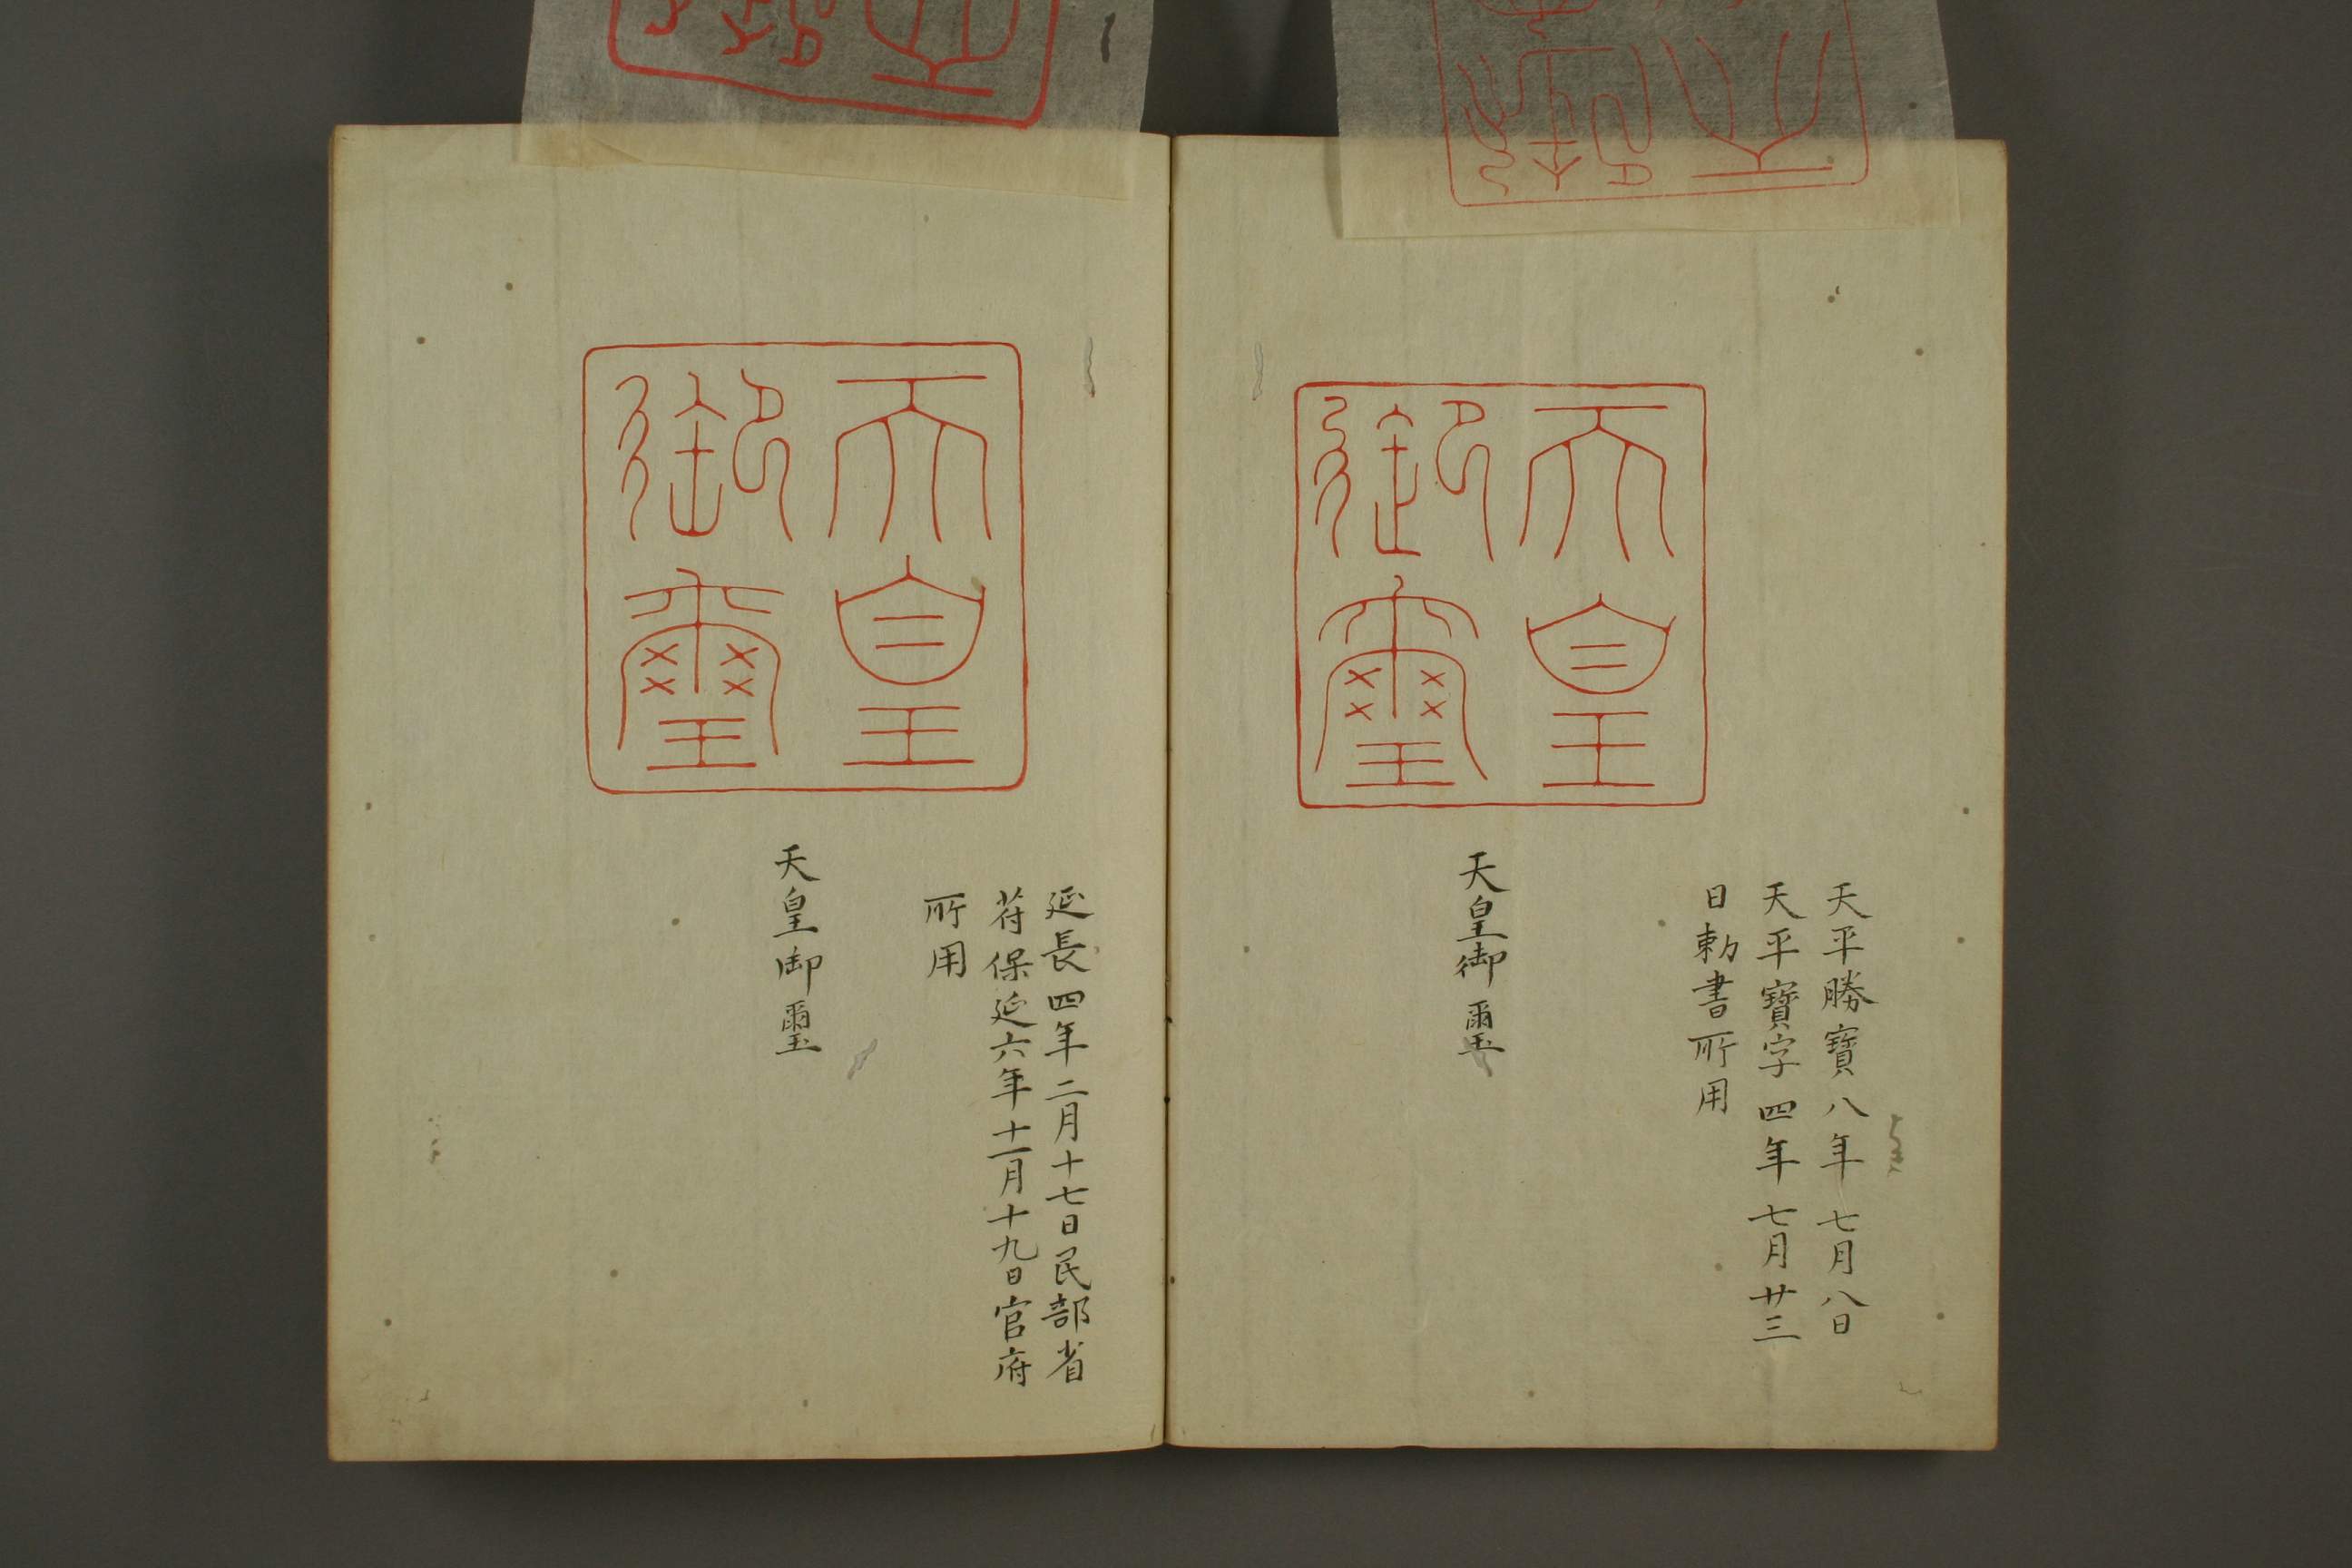 天皇
御璽
天平勝寳八年七月八日
天平寳字四年七月廿三
日勅書所用
天皇御璽
天皇
御璽
延長四年二月十七日民部省
符保延六年十一月十九日官府
所用
天皇御璽